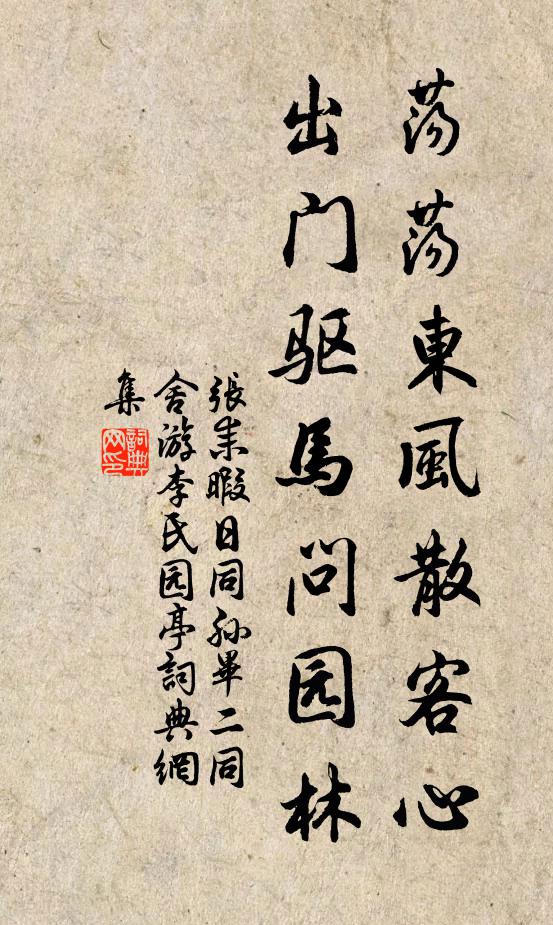 荡荡東風散客心
出门驱馬问园林
張耒暇日同孙畢二同
舍游李氏园亭詞典網
集
詞典
网印